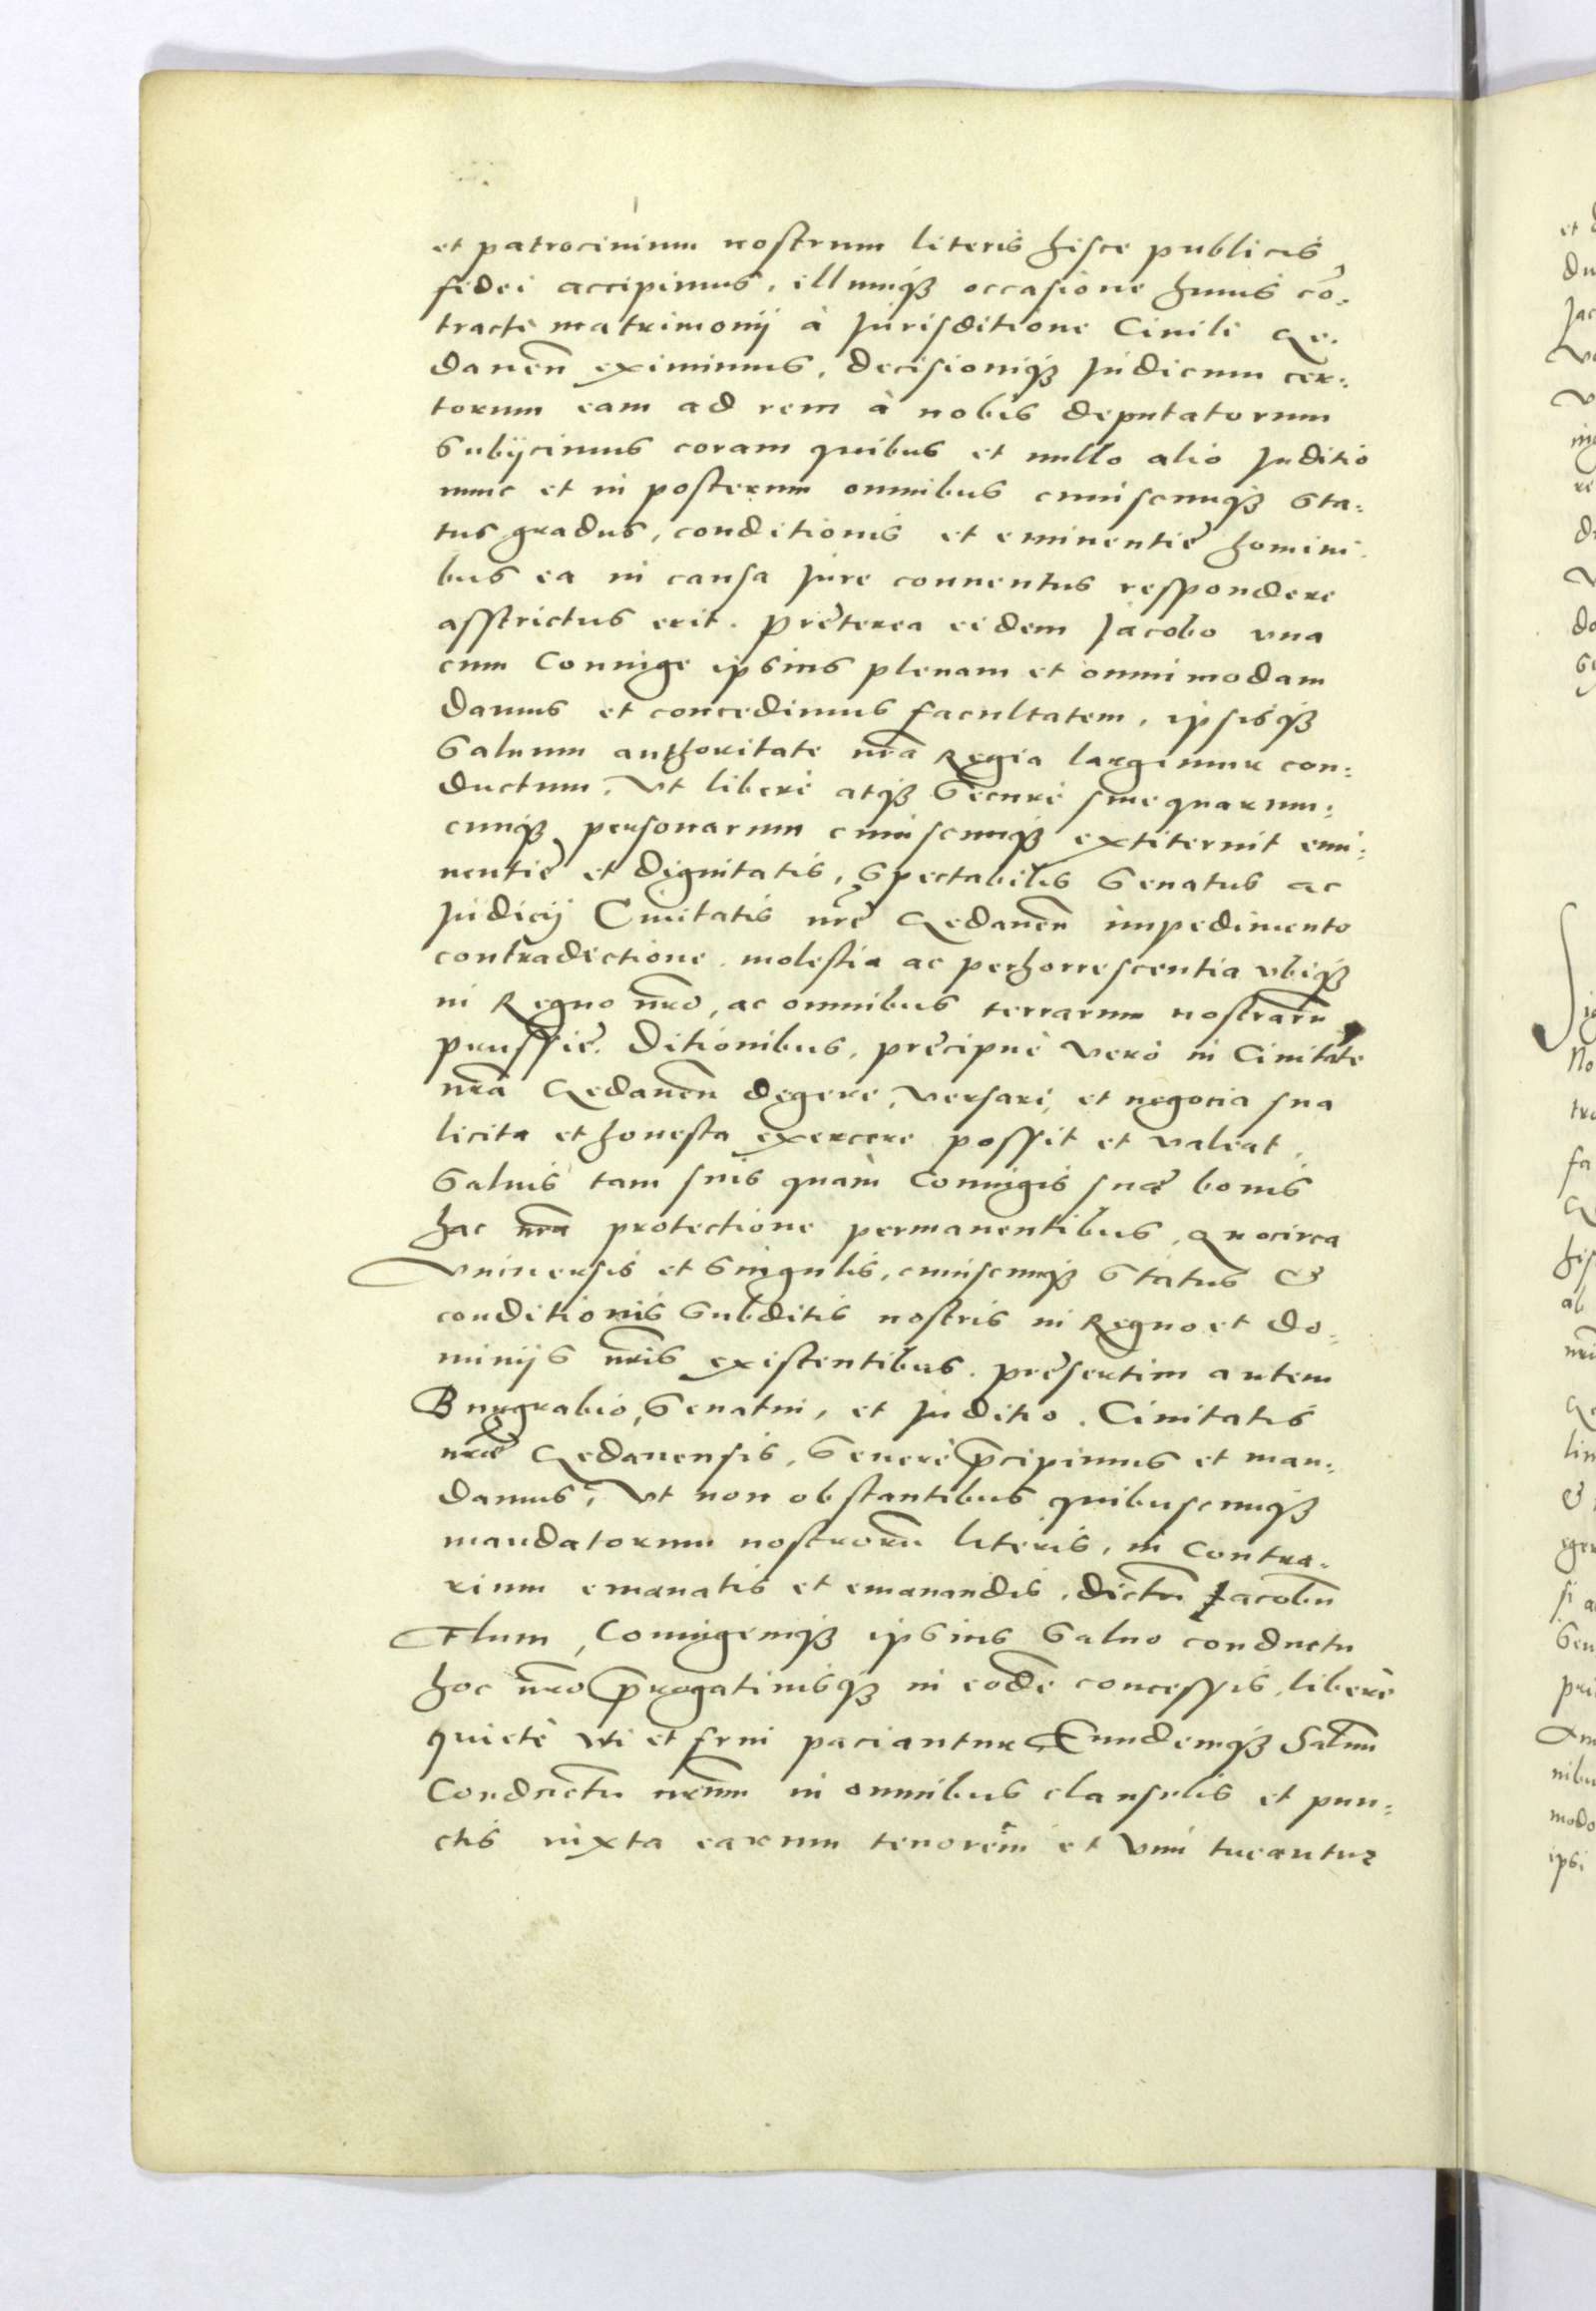 et patrocinium nostrum literis hisce publicis
fidei accipimus, illumq3 occasione huius cō-
tracti matrimonij à Jurisditione Ciuili Ge-
daneñ eximimus, decisioniq3 Judicum cer-
torum eam ad rem à nobis deputatorum
Subijcimus coram quibus et nullo alio Juditio
nunc et in posterum omnibus cuiuscunq3 sta-
tus gradus, conditionis et eminentię homini-
bus ea in causa Jure conuentus respondere
asstrictus erit. Pręterea eidem Jacobo vna
cum Coniuge ipsius plenam et omnimodam
damus et concedimus facultatem, ipsisq3
Saluum authoritate nr̃a Regia largimur con-
ductum, Vt liberè atq3 Securè siue quarum-
cunq3 personarum cuiuscunq3 extiterint emi-
nentię et dignitatis, Spectabilis Senatus ac
Judicij Ciuitatis nr̃ę Gedaneñ impedimento
contradictione, molestia ac perhorrescentia vbiq3
in Regno nr̃o, ac omnibus terrarum nostrarū
prussię. Ditionibus, pręcipuè verò in Ciuitate
nr̃a Gedaneñ degere, versari, et negocia sua
licita et honesta exercere possit et valeat,
Saluis tam suis quàm Coniugis suæ bonis
hac nr̃a protectione permanentibus, Quocirca
Vniuersis et Singulis, cuiuscunq3 Status &
conditionis Subditis nostris in Regno et Do-
minijs nr̃is existentibus. pręsertim autem
Burgrabio, Senatui, et Juditio. Ciuitatis
nr̃æ Gedanensis, Seuerè p̄cipimus et man-
damus, Vt non obstantibus quibuscunq3
mandatorum nostrorū literis, in Contra-
rium emanatis et emanandis, dictū Jacobū
Flum, Coniugemq3 ipsius Saluo conductu
hoc nr̃o p̄rogatiuisq3 in eodē concessis, liberè
quietè vti et frui paciantur Eundemq3 Saluū
Conductū nr̃um in omnibus clausulis et pun-
ctis iuxta earum tenorem et vim tueantur